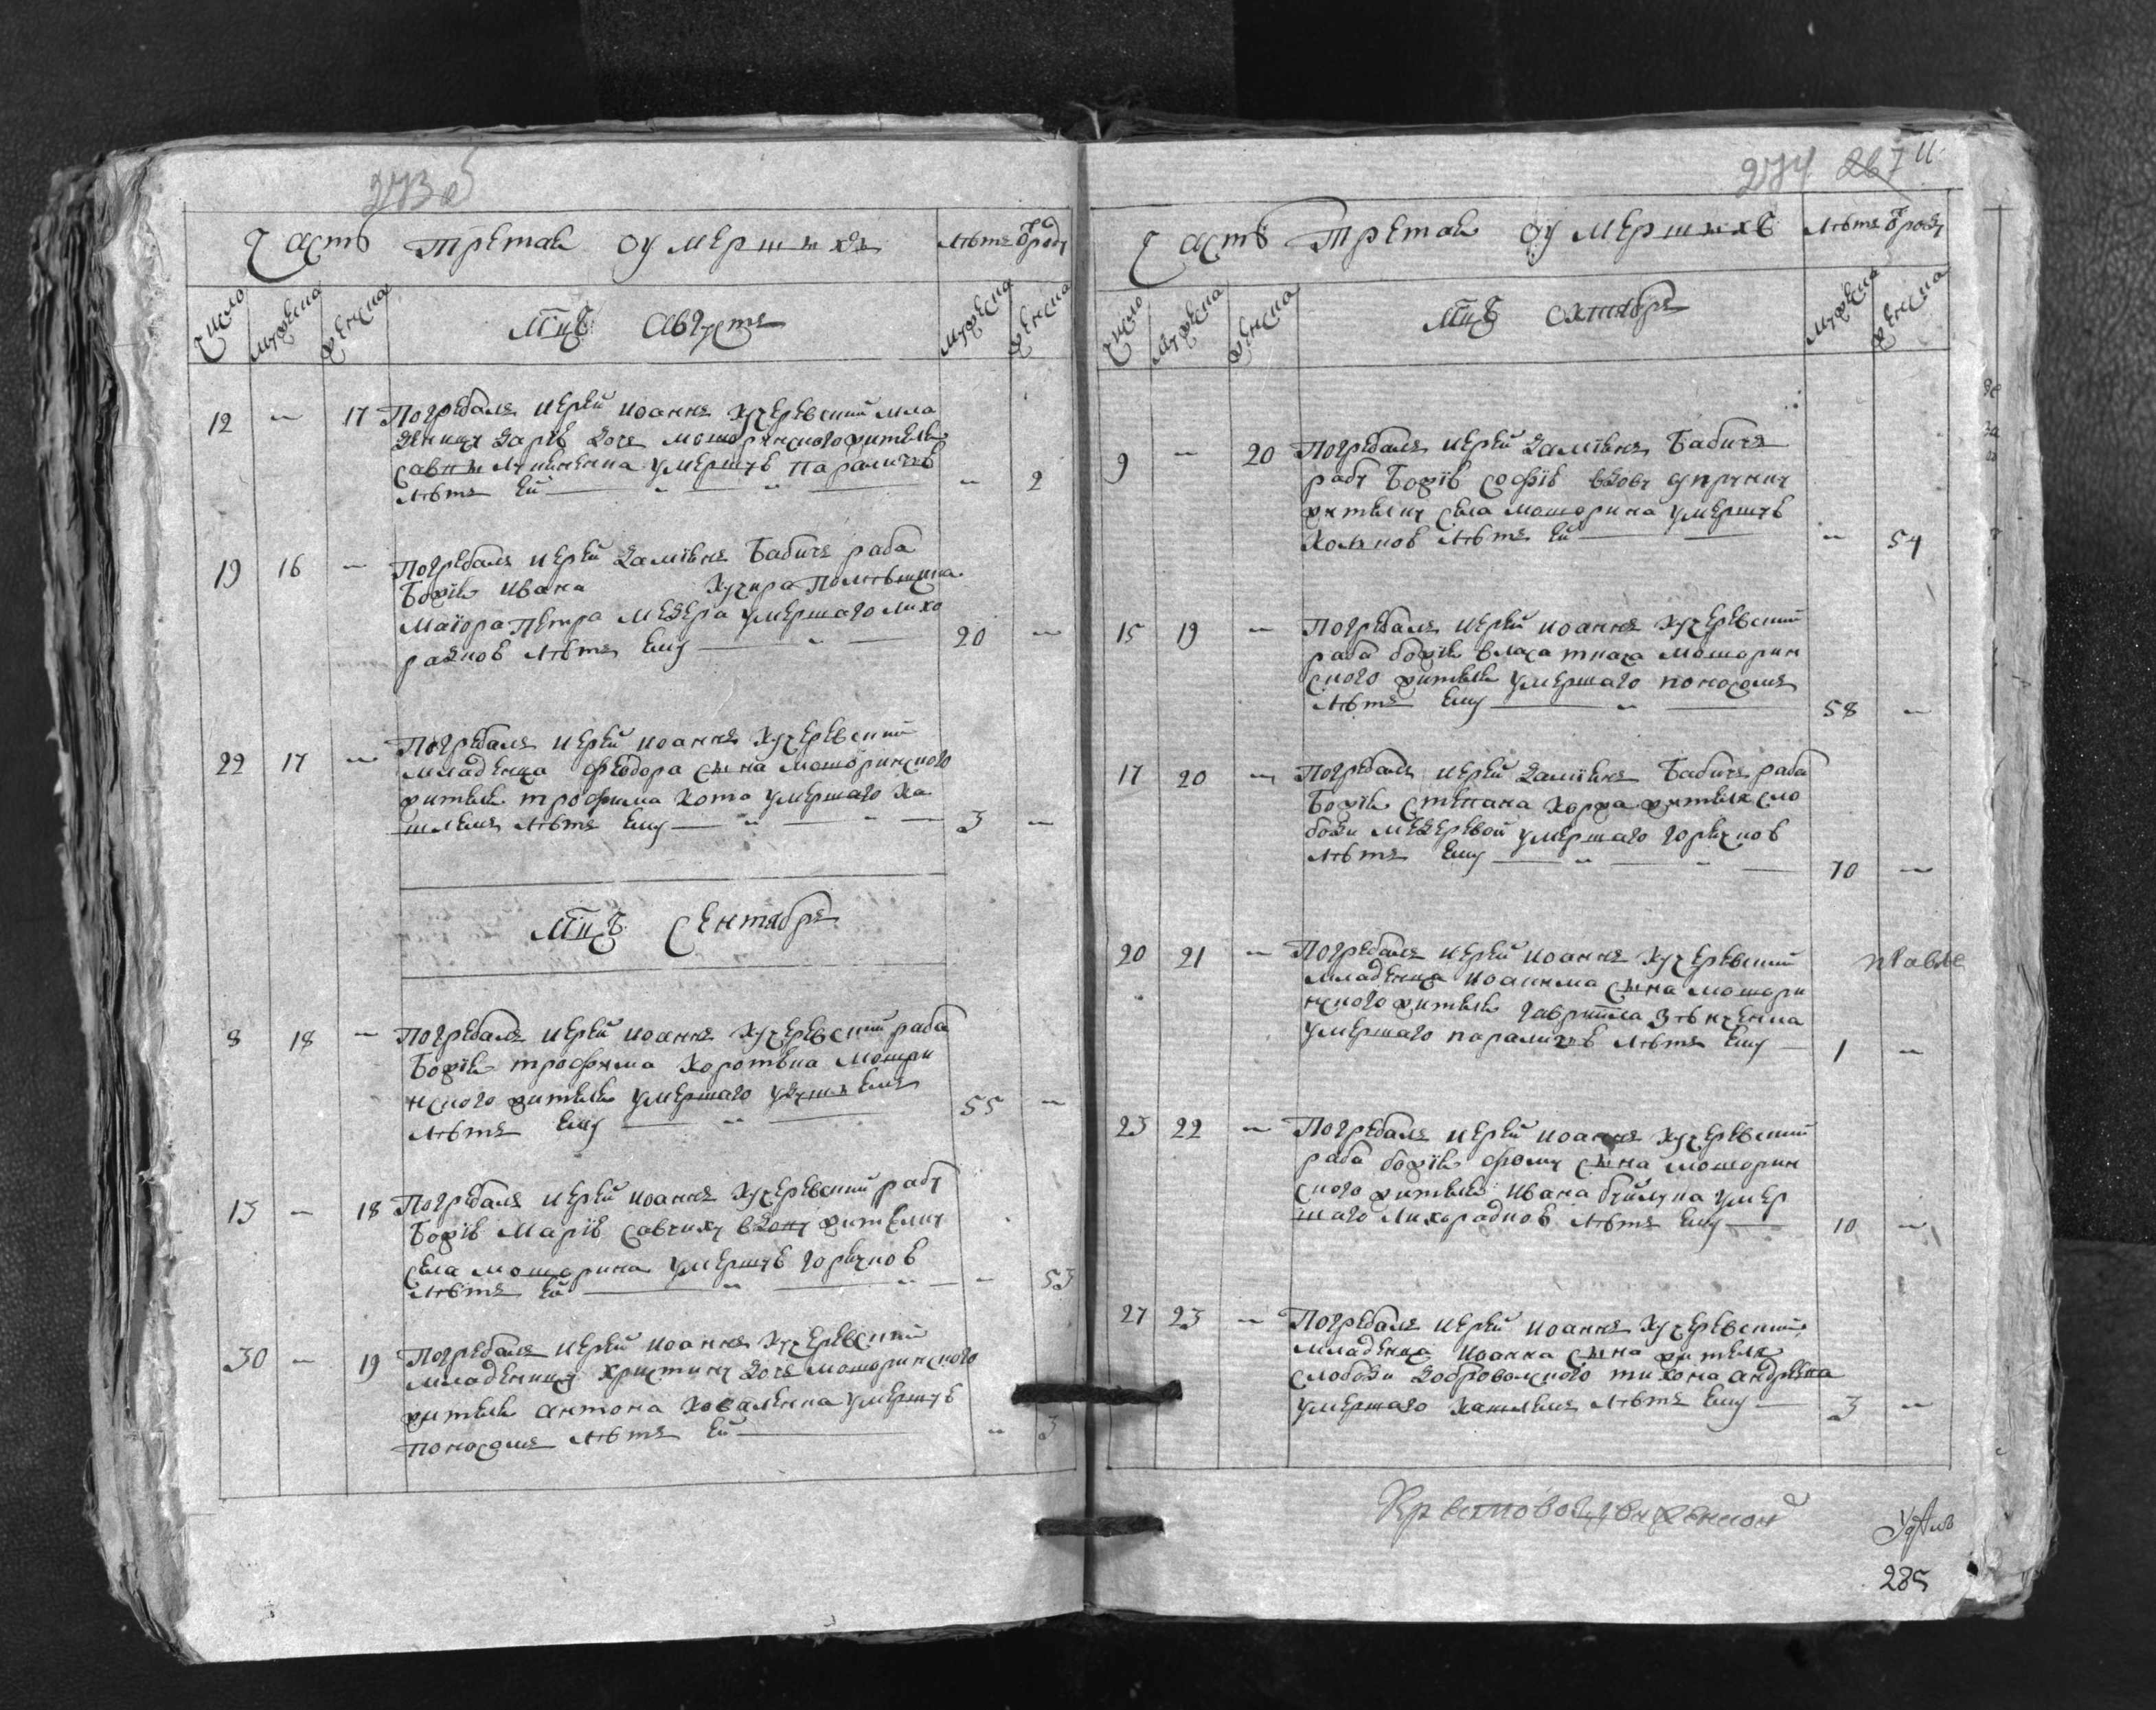 273 об
Часть третая оумершихъ
Лѣтъ ѿроду
число
мужеска
женска
Мцъ Августъ
мужеска
женска
12 – 17 Погребалъ иерей иоаннъ Кучеревский мла
деницу Дарію дочь мошоринского жителя
савы умершую параличѣ
лѣтъ ей – 2
19 16 – Погребалъ иерей Даміянъ Бабичъ раба
Божія ивана хутира помѣщика
маіора Петра Мезера умершаго лихо
радкоѣ лѣтъ ему 20 –
22 17 – Погребалъ иерей иоаннъ Кучеревский
младенца феодора сына мошоринского
жителя трофима Кота умершаго ка
шлемъ лѣтъ ему 3 –
Мцъ Сентябрь
8 18 – Погребалъ иерей иоаннъ Кучеревский раба
Божія трофима Коротька мошори
нского жителя умершаго удушьемъ
лѣтъ ему 55 –
13 – 18 Погребалъ иерей иоаннъ Кучеревский рабу
Божію Марію савчиху вдову жителку
села мошорина умершую горячкоѣ
лѣтъ ей – 53
30 – 19 Погребалъ иерей иоаннъ Кучеревский
младеницу христину дочь мошоринского
жителя антона Коваленка умершую
поносомъ лѣтъ ей – 3
274 267 и
Часть третая оумершихъ
Лѣтъ ѿроду
число
мужеска
женска
Мцъ Октябрь
мужеска
женска
9 – 20 Погребалъ иерей Даміянъ Бабичъ
рабу Божію софію вдову супруниху
жителку села мошорина умершую
Колькоѣ лѣтъ ей – 54
15 19 – Погребалъ иерей иоаннъ Кучеревский
раба божія власа ткача мошорин
ского жителя умершаго поносомъ
лѣтъ ему 58 –
17 20 – Погребалъ иерей Даміянъ Бабичъ раба
Божія стефана Коржа жителя сло
боди мезеревой умершаго горячкоѣ
лѣтъ ему 70 –
20 21 – Погребалъ иерей иоаннъ Кучеревский
младенца иоакима сына мошори
нского жителя гавриїла Зѣнченка
умершаго параличѣ лѣтъ ему 1 –
23 22 – Погребалъ иерей иоаннъ Кучеревский
раба божія фому сына мошорин
ского жителя ивана буйлука умер
шаго лихорадкоѣ лѣтъ ему 10 –
27 23 – Погребалъ иерей иоаннъ Кучеревский
младенца иоанна сына жителя
слободи добровольского тихона андреека
умершаго кашлемъ лѣтъ ему 3 –
285